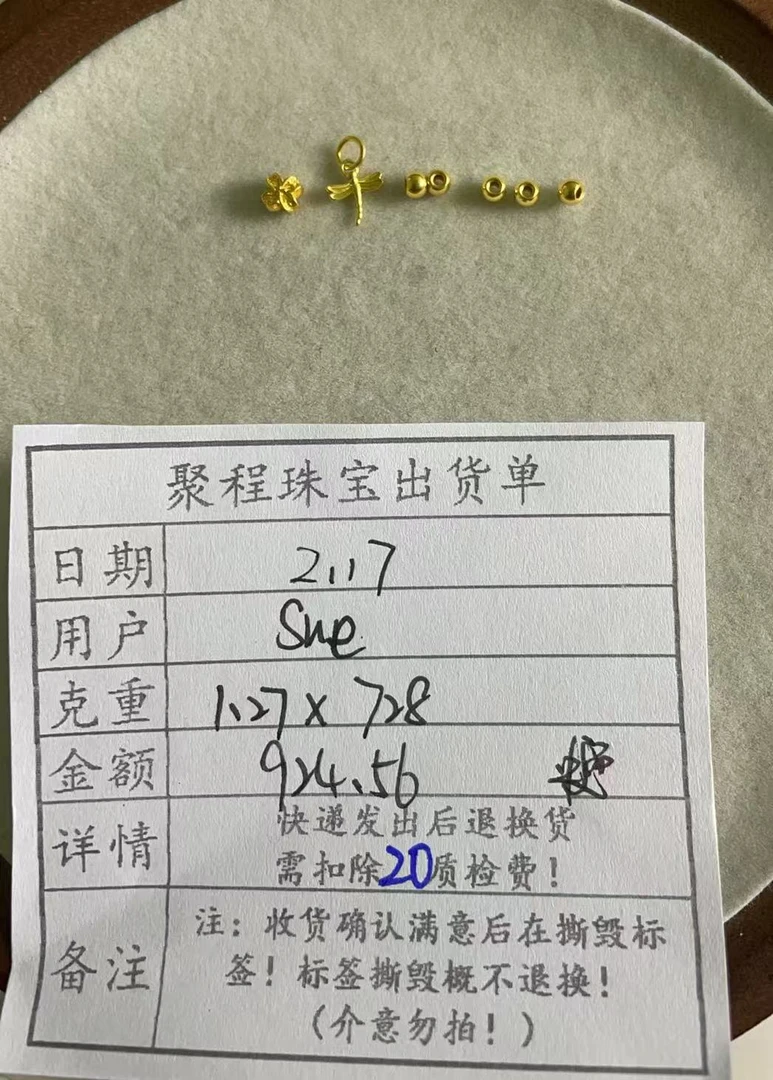 聚程珠宝出货单
日期 2.17
用户 Sue
克重 1.27x728
金额 924.56
详情 快递发出后退换货
需扣除20质检费!
备注 注:收货确认满意后在撕毁标
签!标签撕毁概不退换!
(介意勿拍!)